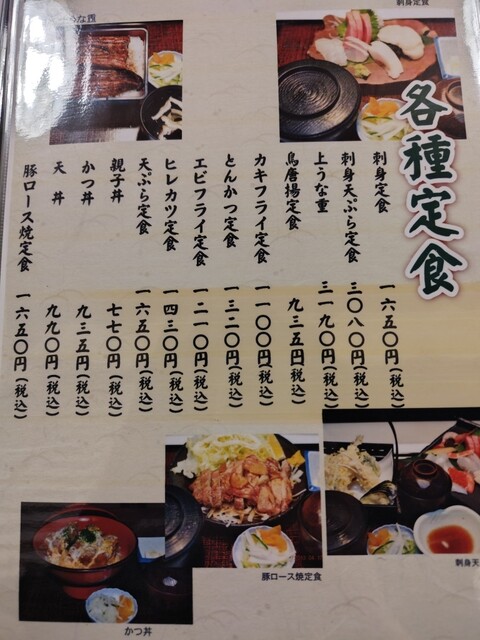 各種定食
刺身定食 一六五〇円(税込)
刺身天ぷら定食 三〇八〇円(税込)
上うな重 三一九〇円(税込)
鳥唐揚定食 九三五円(税込)
カキフライ定食 一一〇〇円(税込)
とんかつ定食 一三二〇円(税込)
エビフライ定食 一二一〇円(税込)
ヒレカツ定食 一四三〇円(税込)
天ぷら定食 一六五〇円(税込)
親子丼 七七〇円(税込)
かつ丼 九三五円(税込)
天丼 九九〇円(税込)
豚ロース焼定食 一六五〇円(税込)
刺身定食
うな重
刺身天
豚ロース焼定食
かつ丼